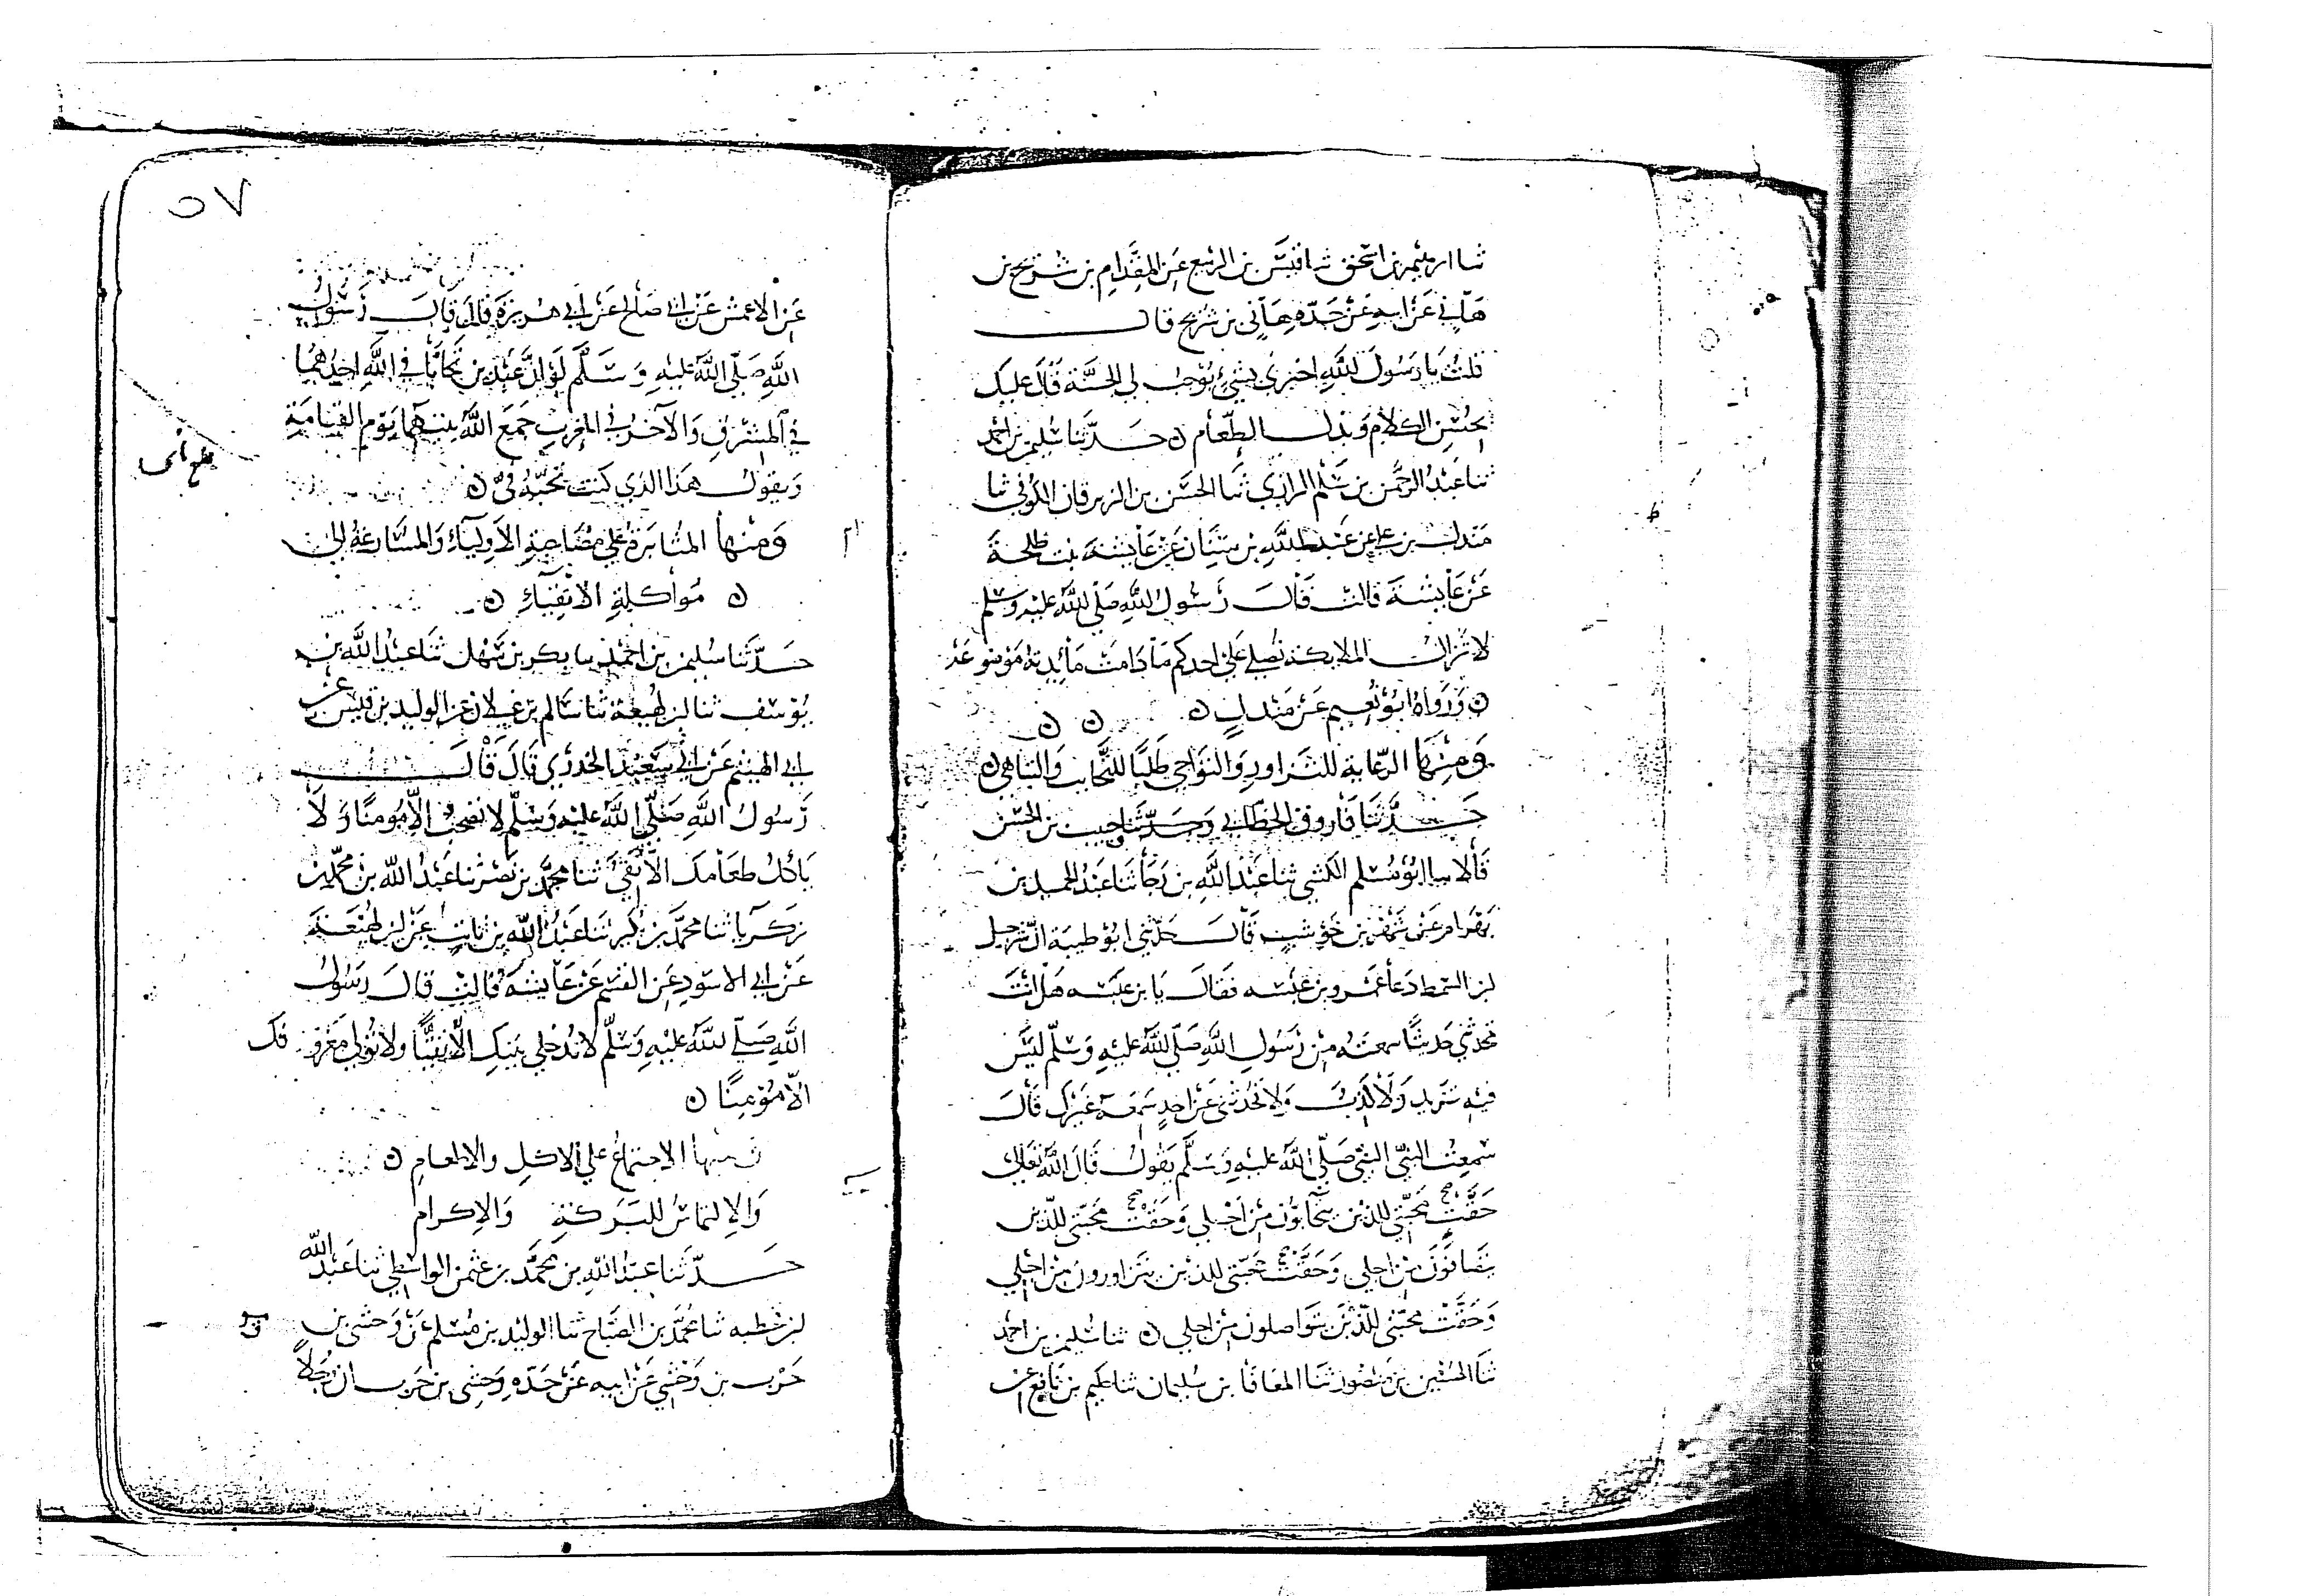 ثنا ابرهيم بن اسحق ثنا قيس بن الربيع عن المقدام بن شريح بن
هاني عن ابيه عن جده هاني بن شريح قال
قلت يا رسول الله اخبرني بشيء يوجب لي الجنة قال عليك
بحسن الكلام وبذل الطعام ه حدثنا سليمن بن احمد
ثنا عبد الرحمن بن سلم الرازي ثنا الحسن بن الزبرقان الكوفي ثنا
مندل بن علي عن عبد الله بن سيان عن عايشة بنت طلحة
عن عايشة قالت قال رسول الله صلى الله عليه وسلم
لا تزال الملايكة تصلي على احدكم ما دامت مايدته موضوعة
ه ورواه ابو نعيم عن مندل ه ه ه
ومنها الرعاية للتزاور والتواخي طلبا للتحابب والتباهي ه
حدثنا فاروق الخطابي وحدثنا حبيب بن الحسن
قالا ثنا ابو مسلم الكشي ثنا عبد الله بن رجا ثنا عبد الحميد بن
بهرام عن شهر بن حوشب قال حدثني ابو طيبة ان شرحبيل
بن السمط دعا عمرو بن عبسه فقال يا بن عبسه هل انت
محدثي حديثا سمعته من رسول الله صلى الله عليه وسلم ليس
فيه تزيد ولا كذب ولا تحدثني عن احد سمعه غيرك قال
سمعت النبي النبي صلى الله عليه وسلم يقول قال الله تعالى
حقت محبتي للذين يتحابون من اجلي وحقت محبتي للذين
يتصافون من اجلي وحقت محبتي للذين يتزاورون من اجلي
وحقت محبتي للذين يتواصلون من اجلي ه ثنا سليمن بن احمد
ثنا الحسين بن منصور ثنا المعافا بن سليمان ثنا حكيم بن نافع عن
٥٧
عن الاعمش عن ابي صالح عن ابي هريرة قال قال رسول
الله صلى الله عليه وسلم لو ان عبدين تحابا في الله احدهما
في المشرق والآخر في المغرب جمع الله بينهما يوم القيامة
ويقول هذا الذي كنت تحبه في ه
ومنها المثابرة على مصاحبة الاولياء والمسارعة الى
ه مواكلة الاتقياء ه
حدثنا سليمن بن احمد ثنا بكر بن سهل ثنا عبد الله بن
يوسف ثنا بن لهيعة ثنا سالم بن غيلان عن الوليد بن قيس عن
ابي الهيثم عن ابي سعيد الخدري قال قال
رسول الله صلى الله عليه وسلم لا تصحب الا مومنا ولا
ياكل طعامك الا تقي ثنا محمد بن نصر ثنا عبد الله بن محمد بن
زكريا ثنا محمد بن بكير ثنا عبد الله بن ثابت عن بن لهيعة
عن ابي الاسود عن القسم عن عايشة قالت قال رسول
الله صلى الله عليه وسلم لا تدخلي بيتك الا تقيا ولا تولي معروفك
الا مؤمنا ه
ومنها الاجتماع على الاكل والاطعام ه
والالتماس للبركة والاكرام
حدثنا عبد الله بن محمد بن عثمن الواسطي ثنا عبد الله
بن قحطبه ثنا محمد بن الصباح ثنا الوليد بن مسلم عن وحشي بن
حرب بن وحشي عن ابيه عن جده وحشي بن حرب ان رجلا